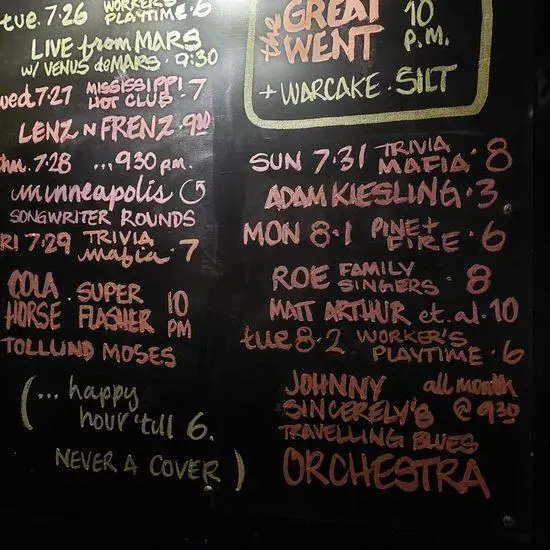 tue. 7.26 WORKER'S
PLAYTIME · 6
LIVE from MARS
W/ VENUS de MARS · 9:30
wed. 7.27 MISSISSIPPI
HOT CLUB · 7
LENZ N FRENZ · 900
thu. 7.28 ... 930 pm.
minneapolis
SONGWRITER ROUNDS
FRI 7.29 TRIVIA
mafia · 7
COLA . SUPER 10
HORSE FLASHER PM
TOLLUND MOSES
(... happy
hour 'till 6.
NEVER A COVER )
the GREAT 10
WENT P.M.
+ WARCAKE · SILT
SUN 7.31 TRIVIA
MAFIA · 8
ADAM KIESLING · 3
MON 8.1 PINE +
FIRE · 6
ROE FAMILY
SINGERS · 8
MATT ARTHUR et. al · 10
tue 8.2 WORKER'S
PLAYTIME · 6
JOHNNY all month
SINCERELY'S @ 930
TRAVELLING BLUES
ORCHESTRA